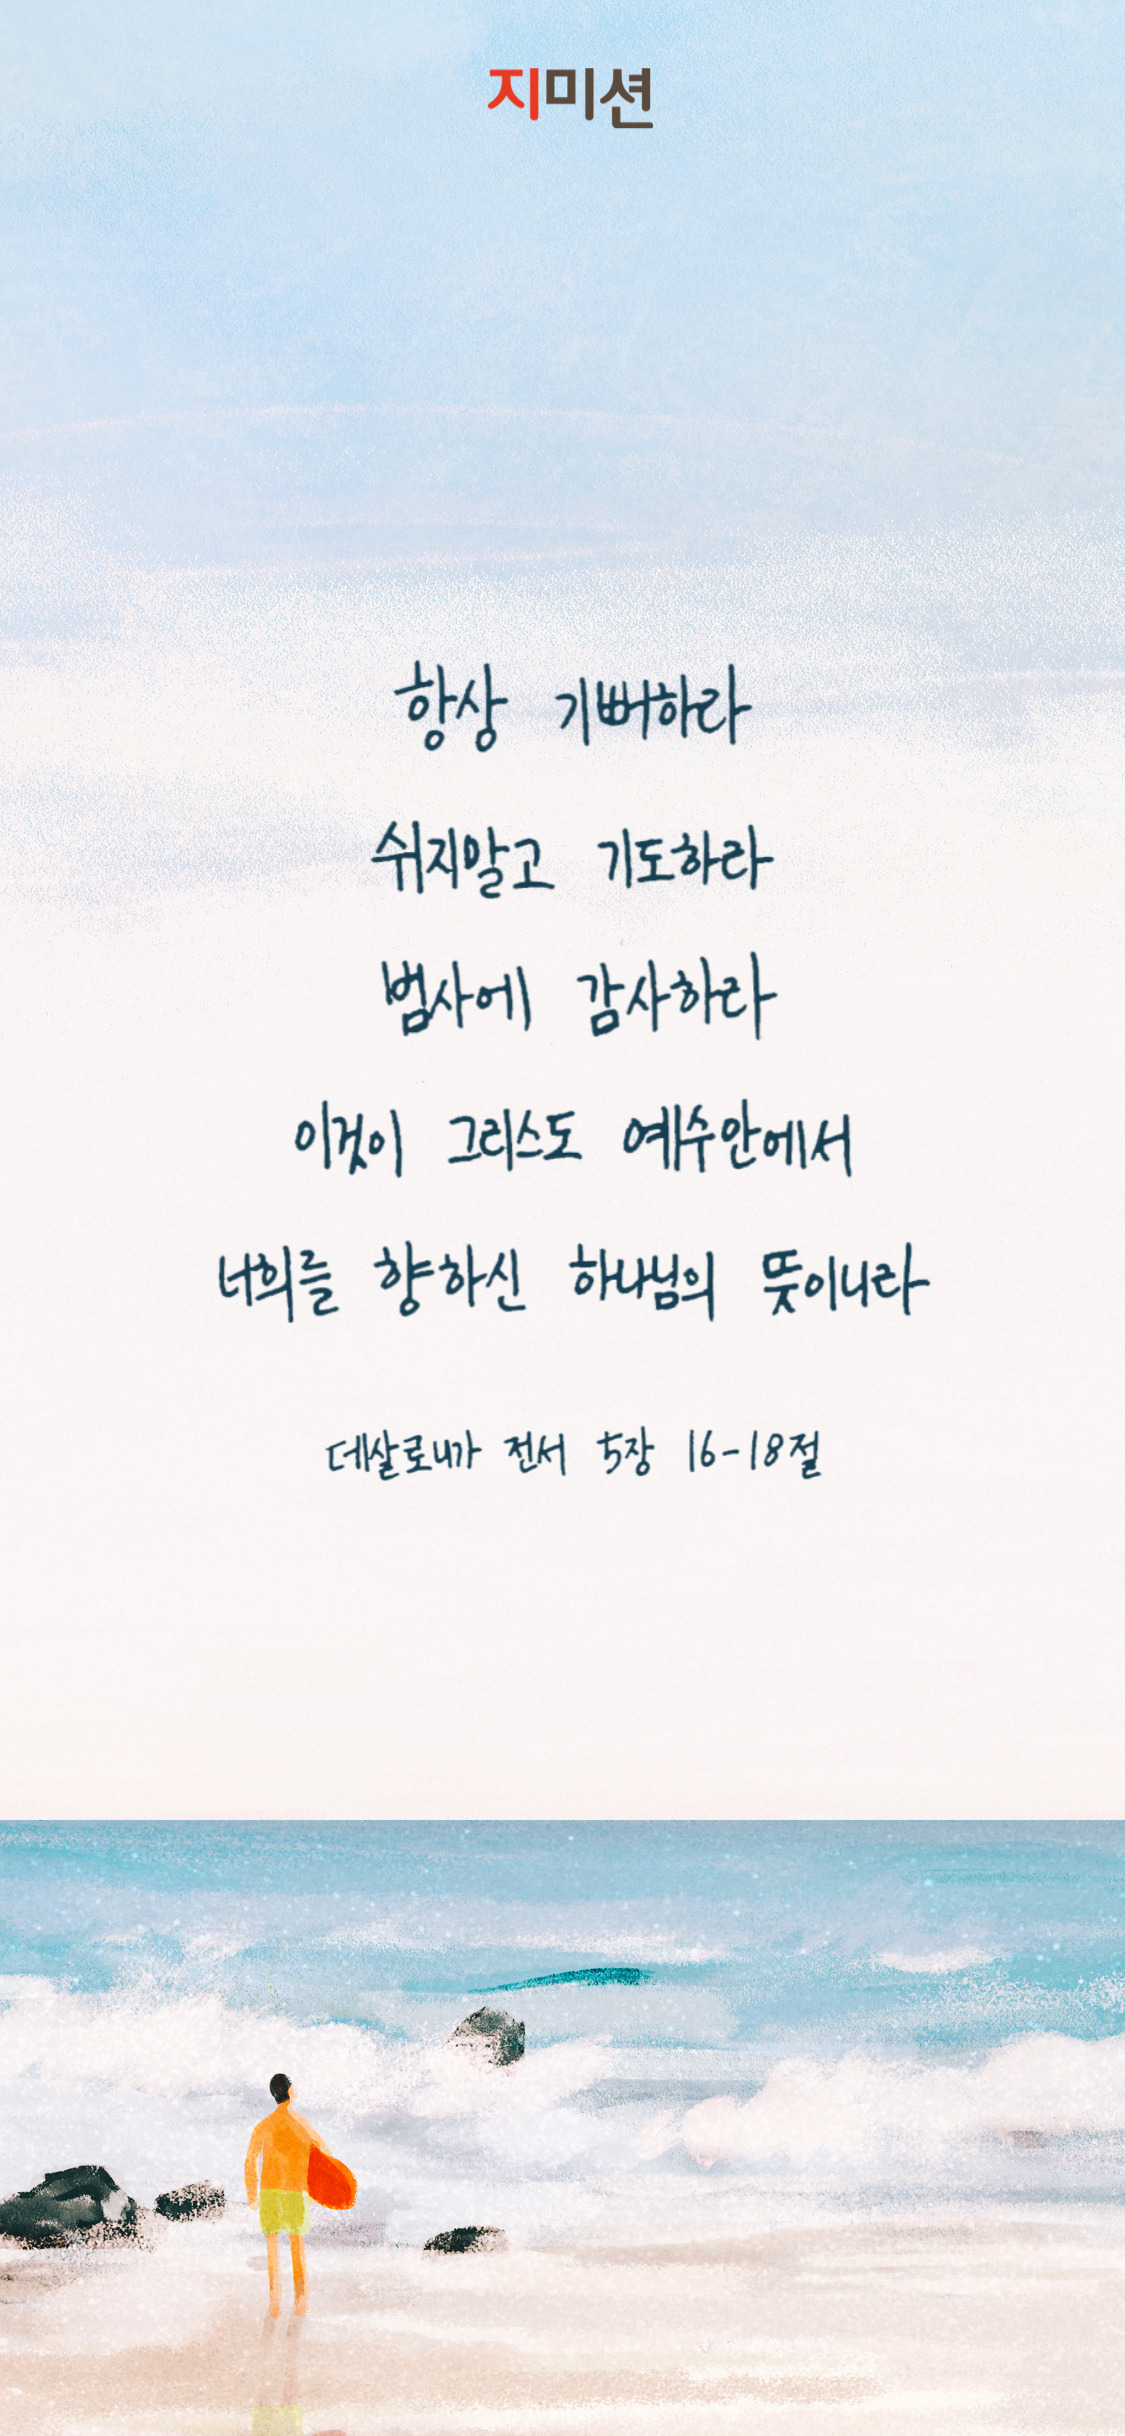 지미션
항상 기뻐하라
쉬지말고 기도하라
범사에 감사하라
이것이 그리스도 예수안에서
너희를 향하신 하나님의 뜻이니라
데살로니가 전서 5장 16-18절